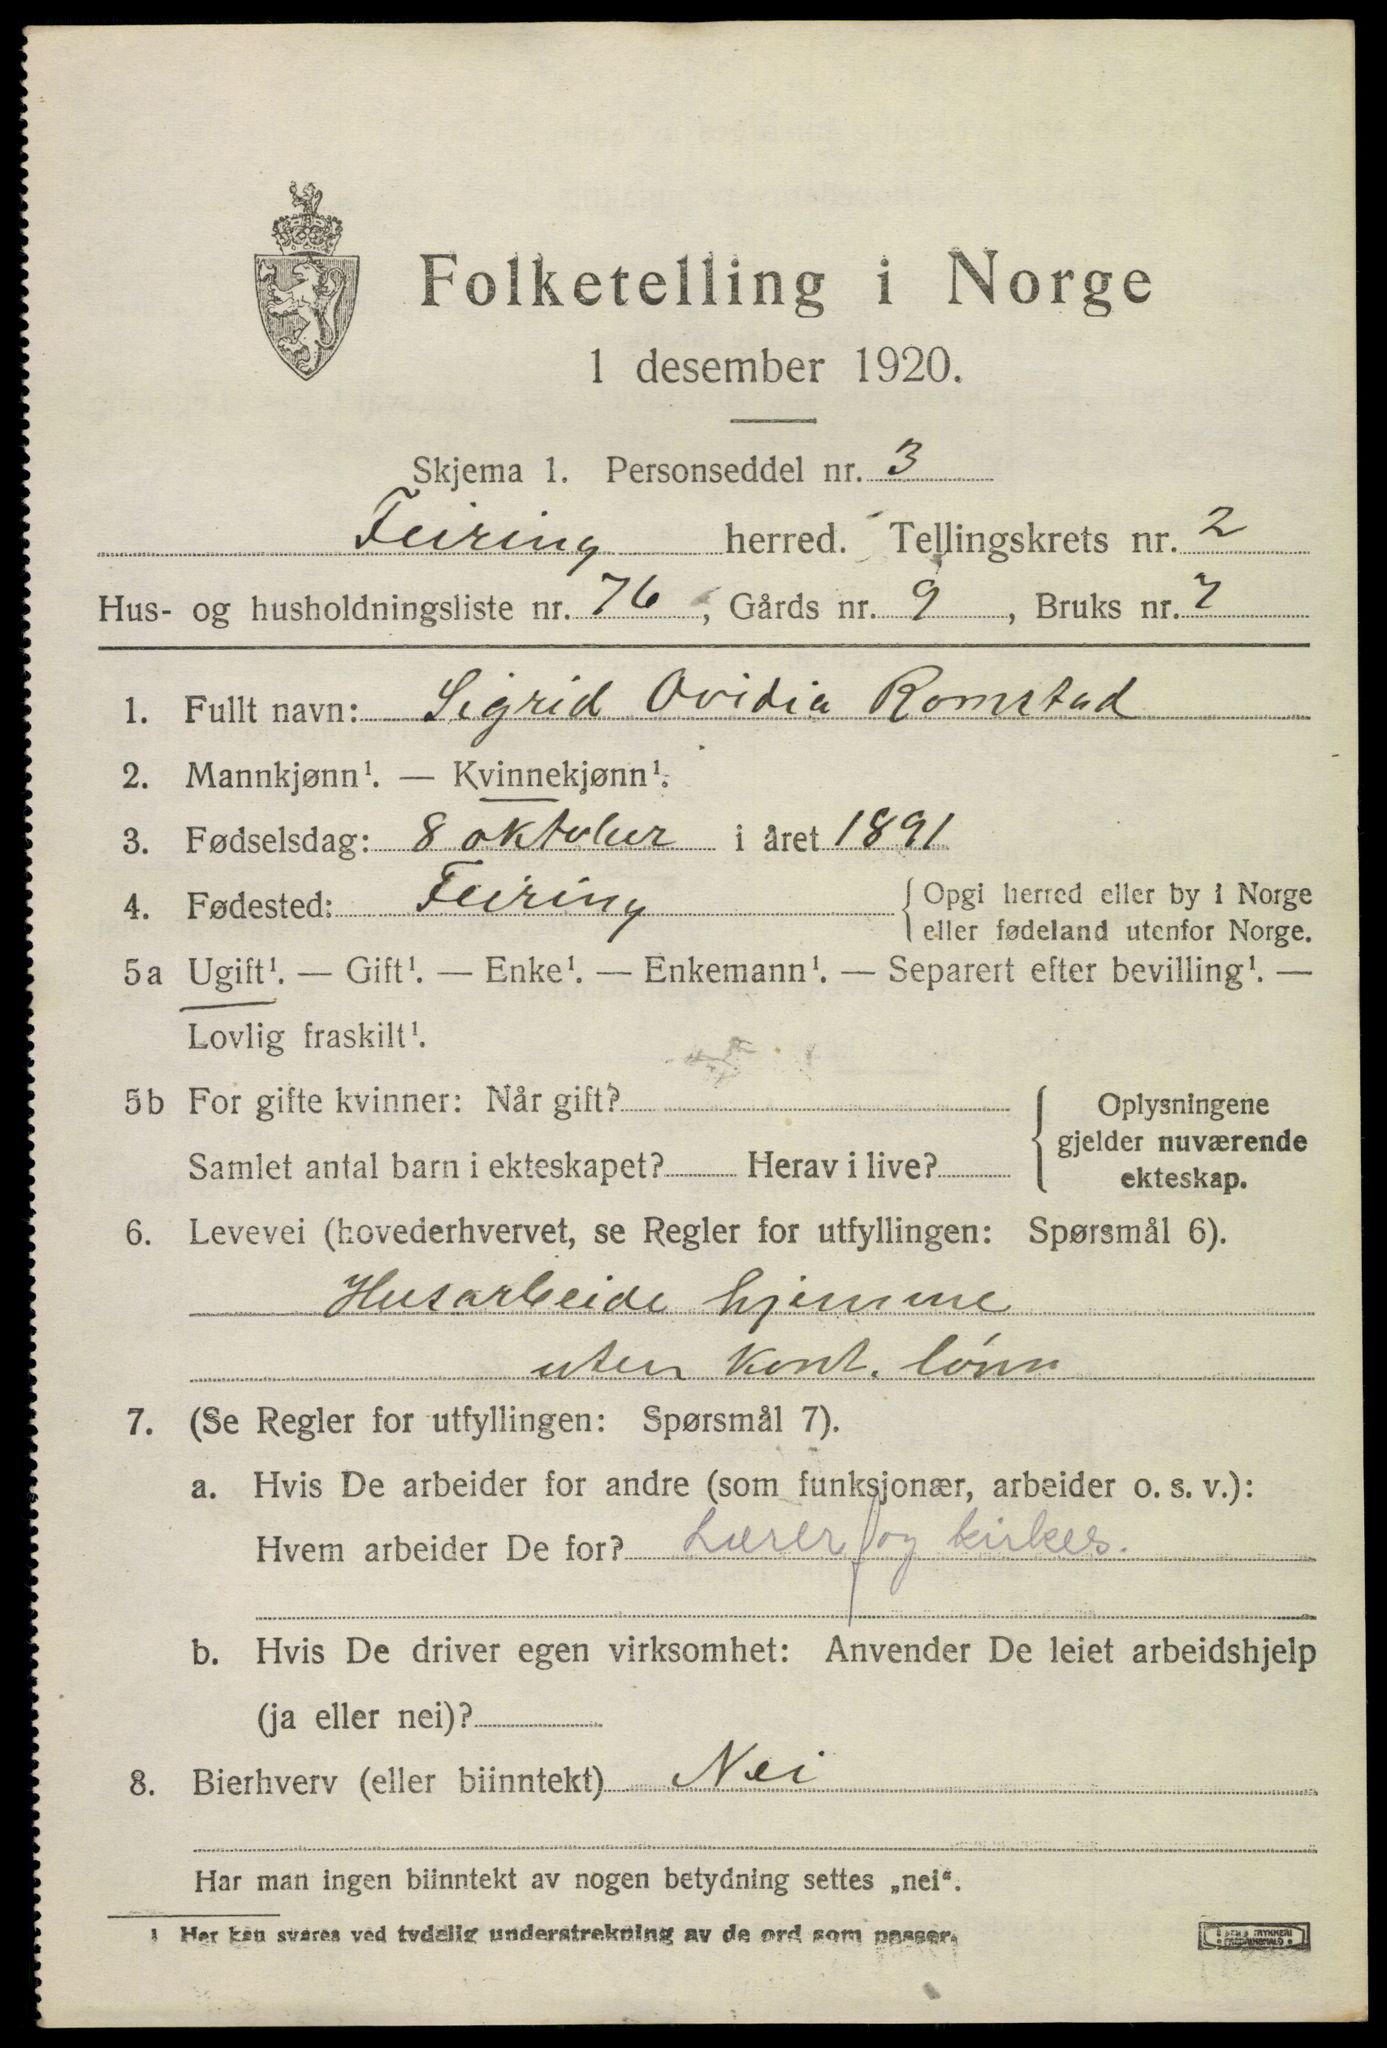 Folketelling i Norge
1 desember 1920.
Skjema 1. Personseddel nr. 3
Feiring herred. Tellingskrets nr. 2
Hus- og husholdningsliste nr. 76, Gårds nr. 9, Bruks nr. 7
1. Fullt navn: Sigrid Ovidia Romstad
2. Mannkjønn¹. — Kvinnekjønn¹.
3. Fødselsdag: 8 oktober i året 1891
4. Fødested: Feiring {Opgi herred eller by i Norge
eller fødeland utenfor Norge.
5a Ugift¹. — Gift¹. — Enke¹. — Enkemann¹. — Separert efter bevilling¹. —
Lovlig fraskilt¹.
5b For gifte kvinner: Når gift?
Samlet antal barn i ekteskapet? Herav i live?
{Oplysningene
gjelder nuværende
ekteskap.
6. Levevei (hovederhvervet, se Regler for utfyllingen: Spørsmål 6).
Husarbeide hjemme
uten kont. lønn
7. (Se Regler for utfyllingen: Spørsmål 7).
a. Hvis De arbeider for andre (som funksjonær, arbeider o. s. v.):
Hvem arbeider De for? Lærer og kirkes.
b. Hvis De driver egen virksomhet: Anvender De leiet arbeidshjelp
(ja eller nei)?
8. Bierhverv (eller biinntekt) Nei
Har man ingen biinntekt av nogen betydning settes „nei“.
1 Her kan svares ved tydelig understrekning av de ord som passer.